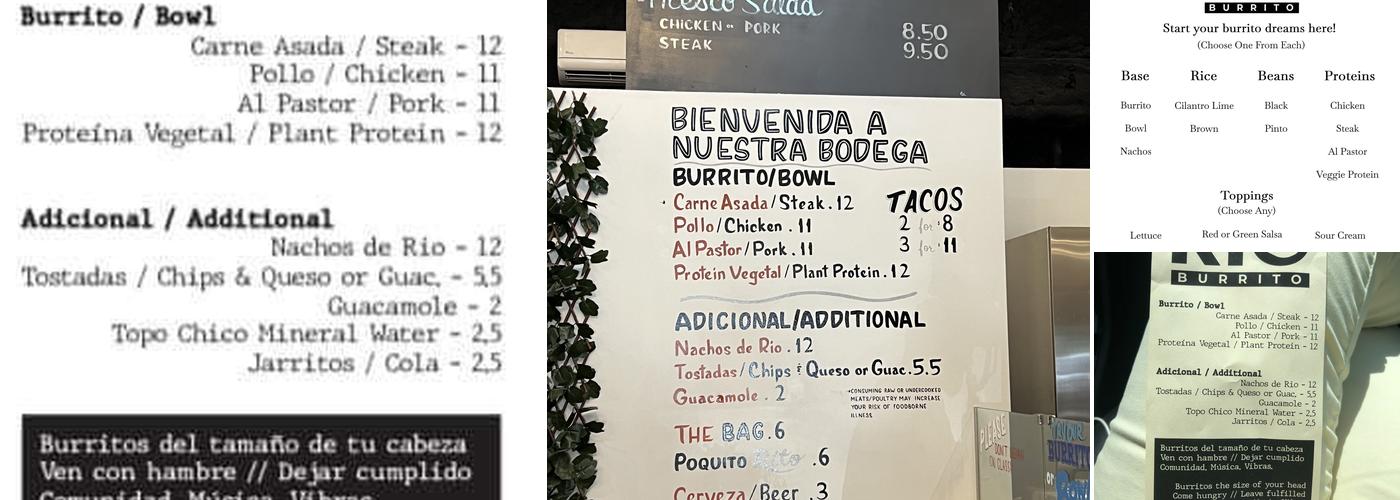 Burrito / Bowl
Carne Asada / Steak - 12
Pollo / Chicken - 11
Al Pastor / Pork - 11
Proteína Vegetal / Plant Protein - 12
Adicional / Additional
Nachos de Rio - 12
Tostadas / Chips & Queso or Guac. - 5.5
Guacamole - 2
Topo Chico Mineral Water - 2.5
Jarritos / Cola - 2.5
Burritos del tamaño de tu cabeza
Ven con hambre // Dejar cumplido
Comunidad, Música, Vibras.
Fresco Salad
CHICKEN or PORK 8.50
STEAK 9.50
BIENVENIDA A
NUESTRA BODEGA
BURRITO/BOWL
Carne Asada/Steak.12
Pollo/Chicken.11
Al Pastor/Pork.11
Protein Vegetal/Plant Protein.12
TACOS
2 for 8
3 for 11
ADICIONAL/ADDITIONAL
Nachos de Rio.12
Tostadas/Chips & Queso or Guac.5.5
Guacamole.2
*CONSUMING RAW OR UNDERCOOKED
MEATS/POULTRY MAY INCREASE
YOUR RISK OF FOODBORNE
ILLNESS
THE BAG.6
POQUITO .6
Cerveza/Beer.3
PLEASE
DON'T
ON GLASS
BURRITO
or
BURRITO
Start your burrito dreams here!
(Choose One From Each)
Base Rice Beans Proteins
Burrito Cilantro Lime Black Chicken
Bowl Brown Pinto Steak
Nachos Al Pastor
Veggie Protein
Toppings
(Choose Any)
Lettuce Red or Green Salsa Sour Cream
RIO
BURRITO
Burrito / Bowl
Carne Asada / Steak - 12
Pollo / Chicken - 11
Al Pastor / Pork - 11
Proteína Vegetal / Plant Protein - 12
Adicional / Additional
Nachos de Rio - 12
Tostadas / Chips & Queso or Guac. - 5.5
Guacamole - 2
Topo Chico Mineral Water - 2.5
Jarritos / Cola - 2.5
Burritos del tamaño de tu cabeza
Ven con hambre // Dejar cumplido
Comunidad, Música, Vibras.
Burritos the size of your head
Come hungry // Leave fulfilled